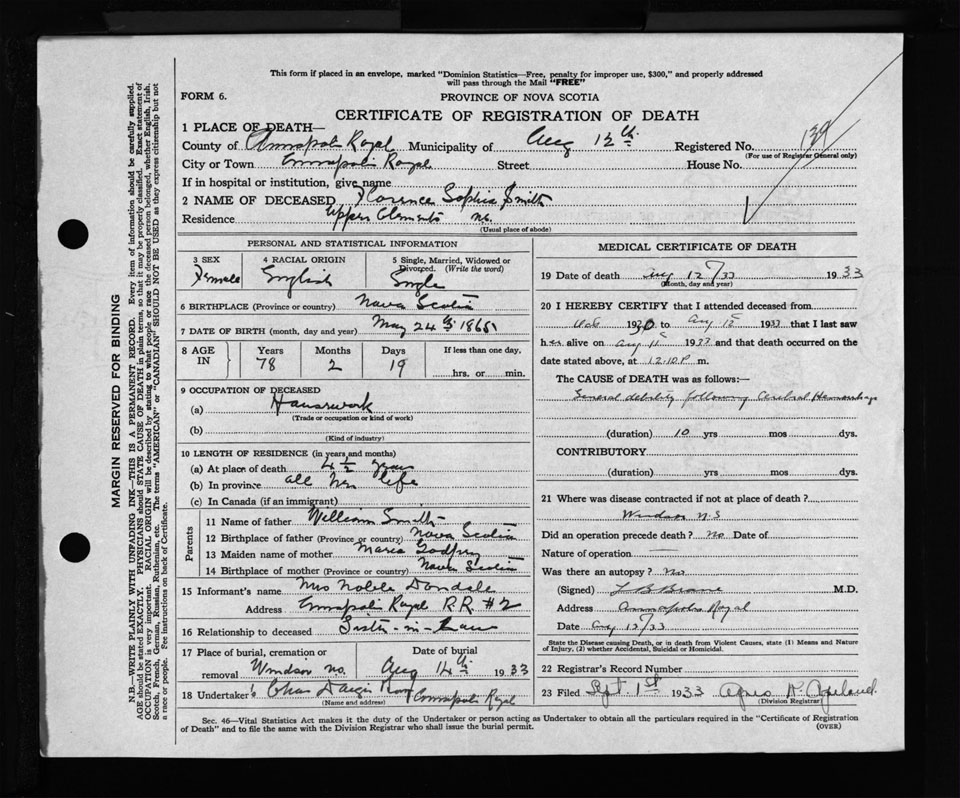 This form if placed in an envelope, marked "Dominion Statistics—Free, penalty for improper use, $300," and properly addressed
will pass through the Mail "FREE"
FORM 6.
PROVINCE OF NOVA SCOTIA
CERTIFICATE OF REGISTRATION OF DEATH
1 PLACE OF DEATH—
County of Annapolis Royal Municipality of Aug 12th Registered No. 139
(For use of Registrar General only)
City or Town Annapolis Royal Street House No.
If in hospital or institution, give name
2 NAME OF DECEASED Florence Sophia Smith
Residence Upper Clements N.S.
(Usual place of abode)
PERSONAL AND STATISTICAL INFORMATION
3 SEX 4 RACIAL ORIGIN 5 Single, Married, Widowed or
Divorced. (Write the word)
Female English Single
6 BIRTHPLACE (Province or country) Nova Scotia
7 DATE OF BIRTH (month, day and year) May 24th 1865
8 AGE IN Years Months Days If less than one day,
78 2 19 hrs. or min.
9 OCCUPATION OF DECEASED
(a) Housework
(Trade or occupation or kind of work)
(b)
(Kind of industry)
10 LENGTH OF RESIDENCE (in years and months)
(a) At place of death 4 1/2 years
(b) In province all her life
(c) In Canada (if an immigrant)
Parents
11 Name of father William Smith
12 Birthplace of father (Province or country) Nova Scotia
13 Maiden name of mother Maria Godfrey
14 Birthplace of mother (Province or country) Nova Scotia
15 Informant's name Mrs
Address Annapolis Royal R.R. #2
16 Relationship to deceased Sister-in-Law
17 Place of burial, cremation or Date of burial
removal Windsor N.S. Aug 14th 1933
18 Undertaker Chas Annapolis Royal
(Name and address)
MEDICAL CERTIFICATE OF DEATH
19 Date of death Aug 12/33 1933
(Month, day and year)
20 I HEREBY CERTIFY that I attended deceased from
1930 to Aug 12 1933 that I last saw
her alive on Aug 11 1933 and that death occurred on the
date stated above, at 12.10 P m.
The CAUSE OF DEATH was as follows:—
General debility following Cerebral Hemorrhage
(duration) 10 yrs mos dys.
CONTRIBUTORY
(duration) yrs mos dys.
21 Where was disease contracted if not at place of death?
Windsor N.S
Did an operation precede death? No Date of
Nature of operation —
Was there an autopsy? No
(Signed) L B M.D.
Address Annapolis Royal
Date Aug 12/33
State the Disease causing Death, or in death from Violent Causes, state (1) Means and Nature
of Injury, (2) whether Accidental, Suicidal or Homicidal.
22 Registrar's Record Number
23 Filed Sept. 1st 1933 Agnes
(Division Registrar)
Sec. 46—Vital Statistics Act makes it the duty of the Undertaker or person acting as Undertaker to obtain all the particulars required in the "Certificate of Registration
of Death" and to file the same with the Division Registrar who shall issue the burial permit.
(OVER)
MARGIN RESERVED FOR BINDING
N.B.—WRITE PLAINLY WITH UNFADING INK—THIS IS A PERMANENT RECORD. Every item of information should be carefully supplied.
AGE should be stated EXACTLY. PHYSICIANS should STATE CAUSE OF DEATH in plain terms, so that it may be properly classified. Exact statement of
OCCUPATION is very important. RACIAL ORIGIN will be described by stating to what people or race the deceased person belonged, whether English, Irish,
Scotch, French, German, Russian, Ruthenian, etc. The terms "AMERICAN" or "CANADIAN" SHOULD NOT BE USED as they express citizenship but not
a race or people. Fee instructions on back of Certificate.